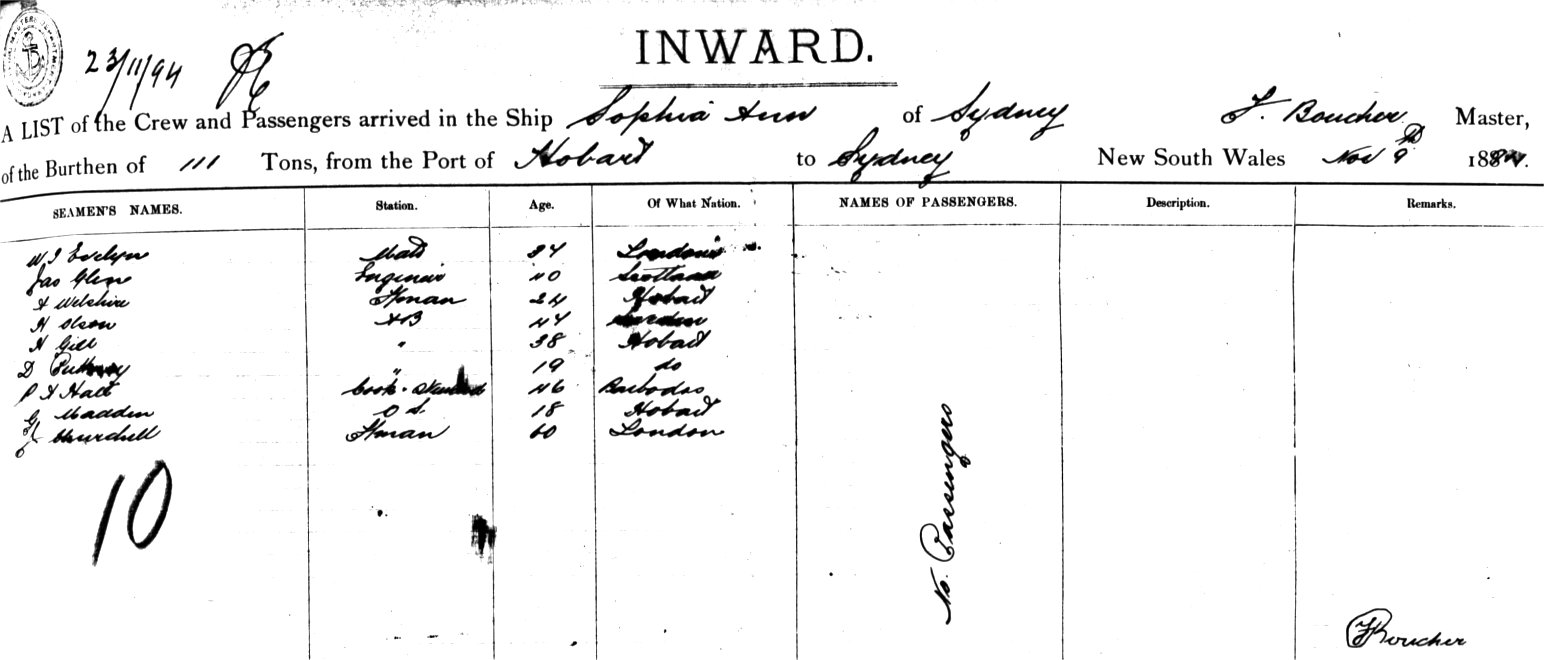 23/11/94
INWARD.
A LIST of the Crew and Passengers arrived in the Ship Sophia Ann of Sydney F. Boucher Master,
of the Burthen of 111 Tons, from the Port of Hobart to Sydney New South Wales Nov 9th 18
SEAMEN'S NAMES. Station. Age. Of What Nation. NAMES OF PASSENGERS. Description. Remarks.
W J Evelyn Mate 34 London
Jas Glen Engineer 40 Scotland
A Welshire Fman 24 Hobart
H Olson AB 44
H Gill " 38 Hobart
D " 19 do
P A Hall Cook & Steward 46 Barbados
G Madden O S 18 Hobart
G Churchill Fman 60 London
10
No. Passengers
F Boucher